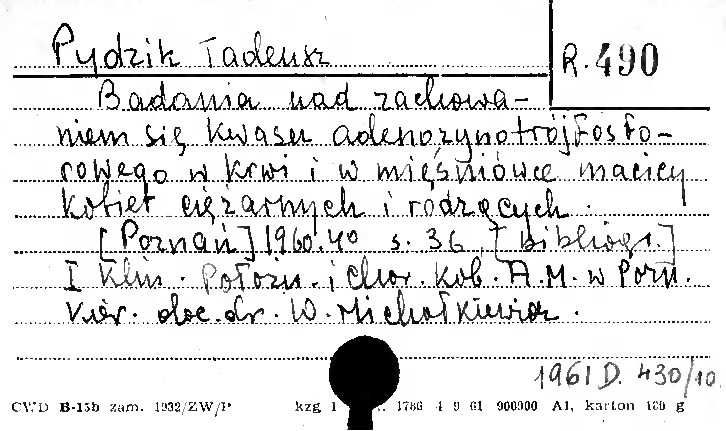 Pydzik Tadeusz
R. 490
Badania nad zachowa-
niem się kwasu adenozynotrójfosfo-
rowego w krwi i w mięśniówce macicy
kobiet ciężarnych i rodzących.
[Poznań] 1960. 4° s. 36 [bibliogr.]
I Klin. Położn. i chor. kob. A.M. w Pozn.
Kier. doc. dr. W. Michałkiewicz.
1961 D. 430/10.
CWD B-15b zam. 1932/ZW/P kzg 1 1786 4 9 61 900000 A1, karton 160 g